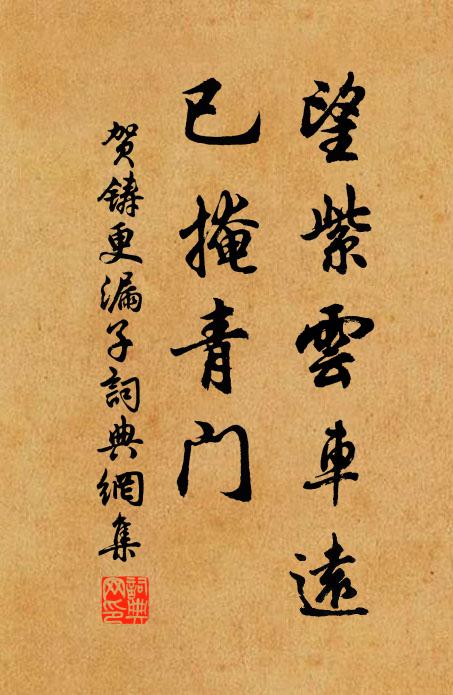 望紫雲車遠
已掩青门
贺鑄更漏子詞典網集
詞典网印